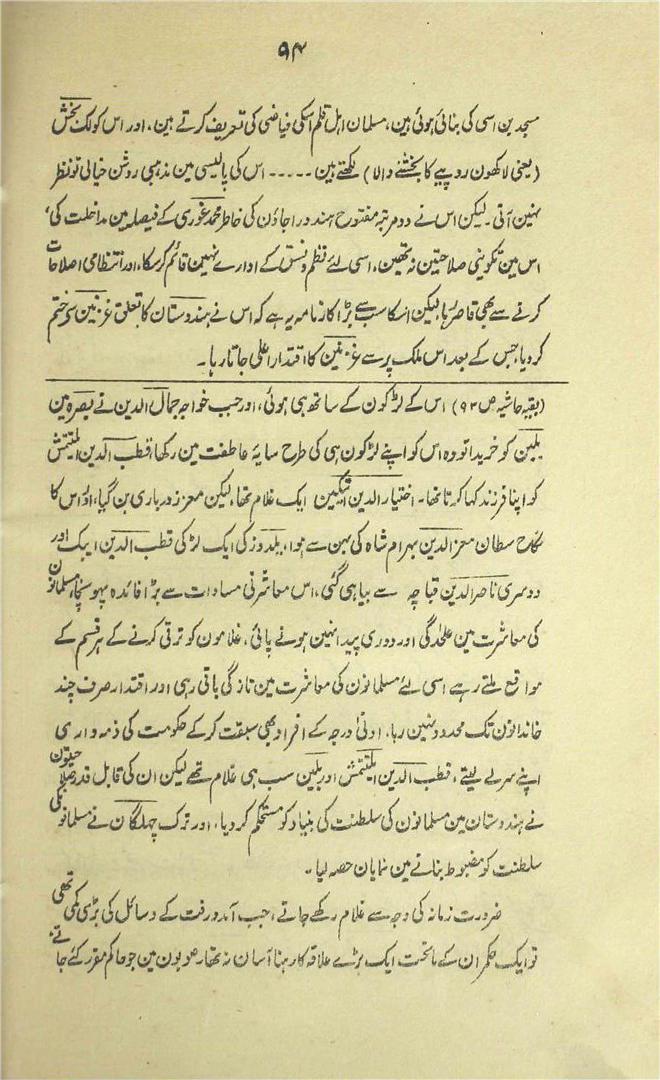 ۹۴
مسجدین اسی کی بنائی ہوئی ہین، مسلمان اہل قلم اسکی فیاضی کی تعریف کرتے ہین، اور اس کو لک بخش
(یعنی لاکھون روپیے کا بخشنے والا) لکھتے ہین ۔۔۔۔۔ اس کی پالیسی مین مذہبی روشن خیالی تو نظر
نہین آتی۔ لیکن اس نے دو مرتبہ مفتوح ہندو راجاؤن کی خاطر محمد غوری کے فیصلہ مین مداخلت کی،
اس مین تکوینی صلاحیتین نہ تھین، اسی لئے نظم و نسق کے ادارے نہین قائم کرسکا، اور انتظامی اصلاحات
کرنے سے بھی قاصر رہا، لیکن اسکا سب سے بڑا کارنامہ یہ ہے کہ اس نے ہندوستان کا تعلق غزنین سے ختم
کر دیا، جس کے بعد اس ملک پر سے غزنین کا اقتدار اعلی جاتا رہا۔
(بقیہ حاشیہ ص ۹۳) اس کے لڑکون کے ساتھ ہی ہوئی، اور جب خواجہ جمال الدین نے بصرہ مین
بلبن کو خریدا تو وہ اس کو اپنے لڑکون ہی کی طرح سایۂ عاطفت مین رکھا، قطب الدین ایلتتمش
کو اپنا فرزند کہا کرتا تھا۔ اختیار الدین ایتگین ایک غلام تھا، لیکن معزز درباری بن گیا، اور اس کا
نکاح سلطان معز الدین بہرام شاہ کی بہن سے ہوا، یلدوز کی ایک لڑکی قطب الدین ایبک اور
دوسری ناصر الدین قباچہ سے بیاہی گئی، اس معاشرتی مساوات سے بڑا فائدہ پہونچا، مسلمانون
کی معاشرت مین علحدگی اور دوری پیدا نہین ہونے پائی، غلامون کو ترقی کرنے کے ہر قسم کے
مواقع ملتے رہے اسی لئے مسلمانون کی معاشرت مین تازگی باقی رہی اور اقتدار صرف چند
خاندانون تک محدود نہین رہا، ادنیٰ درجہ کے افراد بھی سبقت کرکے حکومت کی ذمہ داری
اپنے سر لے لیتے، قطب الدین ایلتتمش اور بلبن سب ہی غلام تھے لیکن ان کی قابل قدر صلاحیتون
نے ہندوستان مین مسلمانون کی سلطنت کی بنیاد کو مستحکم کر دیا، اور ترک چہلگان نے مسلمانونکی
سلطنت کو مضبوط بنانے مین نمایان حصہ لیا۔
ضرورت زمانہ کی وجہ سے غلام رکھے جاتے، جب آمدورفت کے وسائل کی بڑی کمی تھی
تو ایک حکمران کے ماتحت ایک بڑے علاقہ کا رہنا آسان نہ تھا، صوبون مین جو حاکم مقرر کئے جاتے،